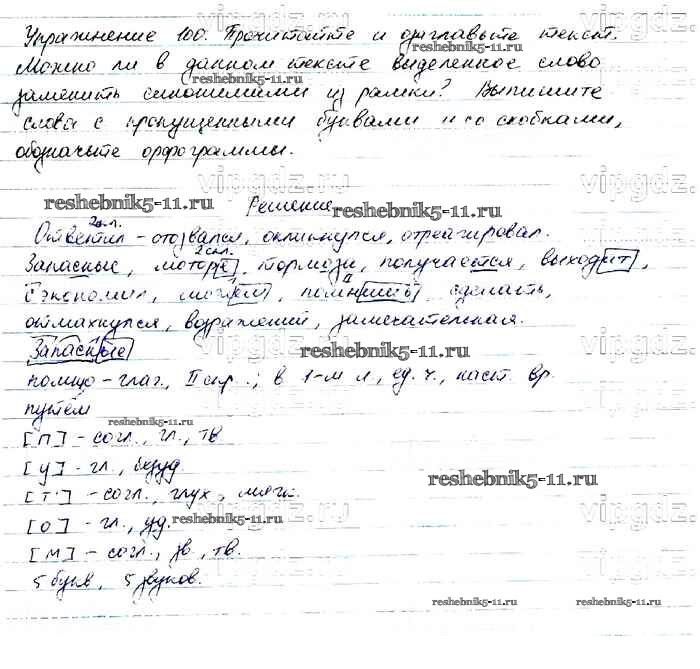 Упражнение 100. Прочитайте и озаглавьте текст.
Можно ли в данном тексте выделенное слово
заменить синонимами из рамки? Выпишите
слова с пропущенными буквами и со скобками,
обозначьте орфограммы.
vipgdz.ru
reshebnik5-11.ru
Решение
reshebnik5-11.ru
Ответил - отозвался, откликнулся, отреагировал.
2 скл.
Запасные, моторе, тормози, получается, выходит,
Сэкономил, можем, помнишь, сделать,
отмахнулся, возражений, замечательная.
Запасные
reshebnik5-11.ru
помню - глаг., II спр.; в 1-м л., ед. ч., наст. вр.
путём
reshebnik5-11.ru
[п] - согл., гл., тв
[у] - гл., безуд.
reshebnik5-11.ru
[т'] - согл., глух., мягк.
[о] - гл., уд.
reshebnik5-11.ru
[м] - согл., зв., тв.
5 букв, 5 звуков.
reshebnik5-11.ru
reshebnik5-11.ru